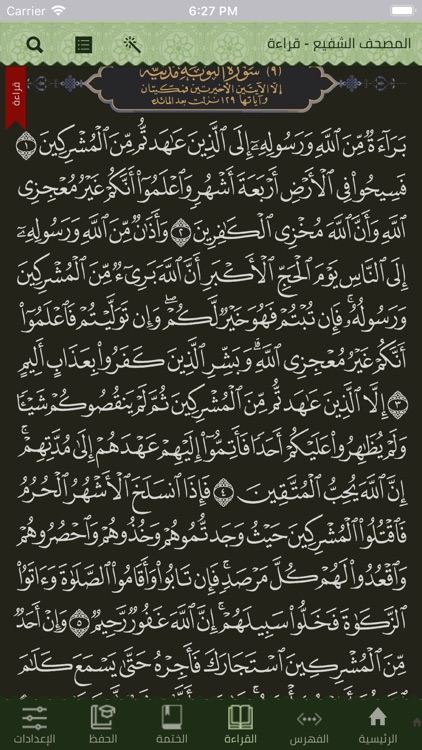 Carrier 6:27 PM
المصحف الشفيع - قراءة
(٩) سورة التوبة مدنية
إلا الآيتين الأخيرتين فمكيتان
وآياتها ١٢٩ نزلت بعد المائدة
قراءة
بَرَآءَةٌ مِّنَ ٱللَّهِ وَرَسُولِهِۦٓ إِلَى ٱلَّذِينَ عَٰهَدتُّم مِّنَ ٱلْمُشْرِكِينَ ١
فَسِيحُوا۟ فِى ٱلْأَرْضِ أَرْبَعَةَ أَشْهُرٍ وَٱعْلَمُوٓا۟ أَنَّكُمْ غَيْرُ مُعْجِزِى
ٱللَّهِ وَأَنَّ ٱللَّهَ مُخْزِى ٱلْكَٰفِرِينَ ٢ وَأَذَٰنٌ مِّنَ ٱللَّهِ وَرَسُولِهِۦٓ
إِلَى ٱلنَّاسِ يَوْمَ ٱلْحَجِّ ٱلْأَكْبَرِ أَنَّ ٱللَّهَ بَرِىٓءٌ مِّنَ ٱلْمُشْرِكِينَ
وَرَسُولُهُۥ فَإِن تُبْتُمْ فَهُوَ خَيْرٌ لَّكُمْ وَإِن تَوَلَّيْتُمْ فَٱعْلَمُوٓا۟
أَنَّكُمْ غَيْرُ مُعْجِزِى ٱللَّهِ وَبَشِّرِ ٱلَّذِينَ كَفَرُوا۟ بِعَذَابٍ أَلِيمٍ
٣ إِلَّا ٱلَّذِينَ عَٰهَدتُّم مِّنَ ٱلْمُشْرِكِينَ ثُمَّ لَمْ يَنقُصُوكُمْ شَيْـًٔا
وَلَمْ يُظَٰهِرُوا۟ عَلَيْكُمْ أَحَدًا فَأَتِمُّوٓا۟ إِلَيْهِمْ عَهْدَهُمْ إِلَىٰ مُدَّتِهِمْ
إِنَّ ٱللَّهَ يُحِبُّ ٱلْمُتَّقِينَ ٤ فَإِذَا ٱنسَلَخَ ٱلْأَشْهُرُ ٱلْحُرُمُ
فَٱقْتُلُوا۟ ٱلْمُشْرِكِينَ حَيْثُ وَجَدتُّمُوهُمْ وَخُذُوهُمْ وَٱحْصُرُوهُمْ
وَٱقْعُدُوا۟ لَهُمْ كُلَّ مَرْصَدٍ فَإِن تَابُوا۟ وَأَقَامُوا۟ ٱلصَّلَوٰةَ وَءَاتَوُا۟
ٱلزَّكَوٰةَ فَخَلُّوا۟ سَبِيلَهُمْ إِنَّ ٱللَّهَ غَفُورٌ رَّحِيمٌ ٥ وَإِنْ أَحَدٌ
مِّنَ ٱلْمُشْرِكِينَ ٱسْتَجَارَكَ فَأَجِرْهُ حَتَّىٰ يَسْمَعَ كَلَٰمَ
الرئيسية الفهرس القراءة الختمة الحفظ الإعدادات